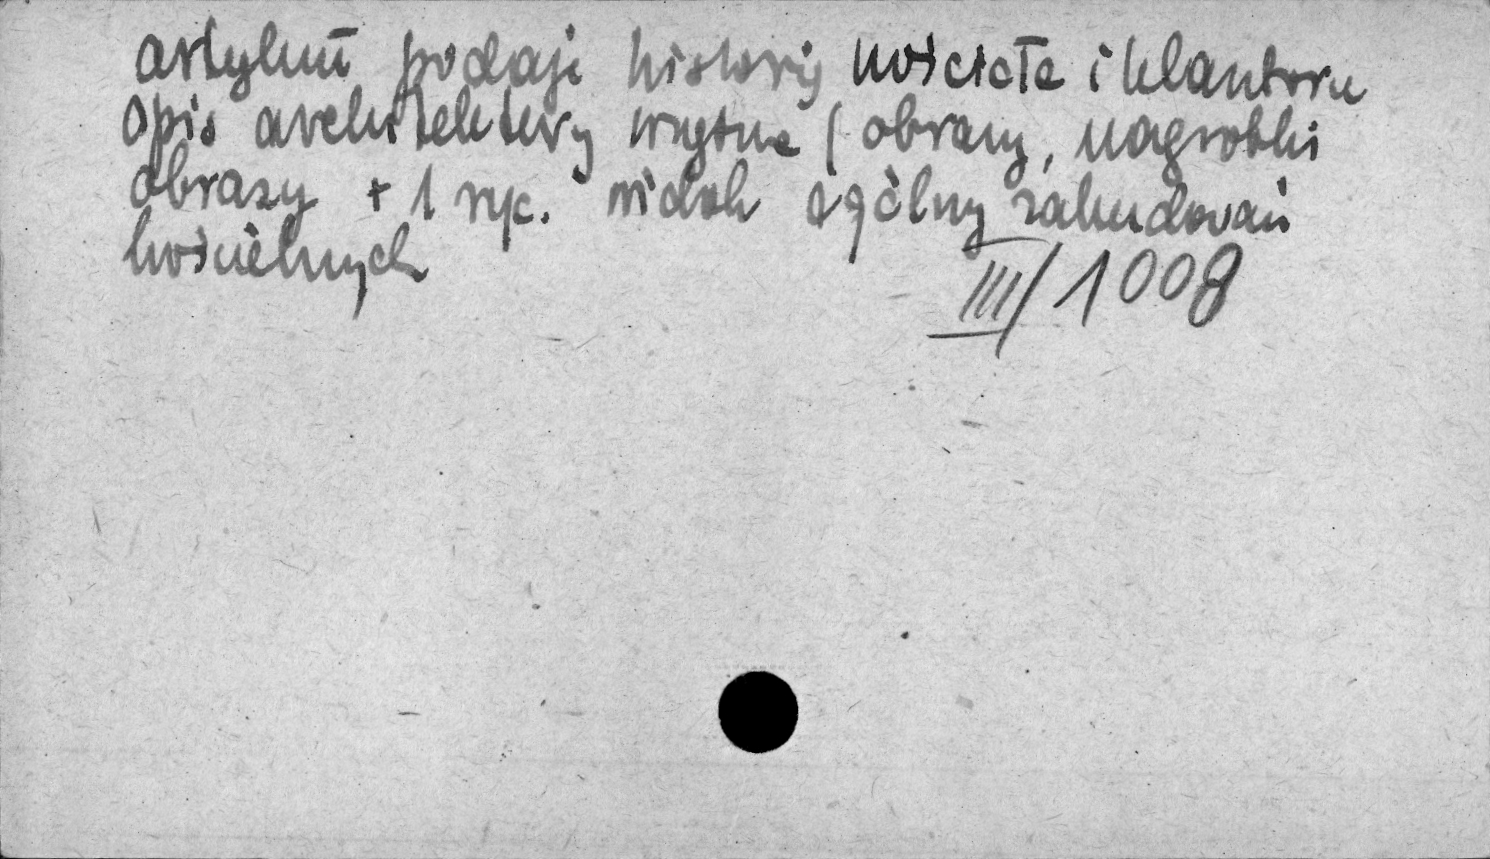 artykuł podaje historię kościoła i klasztoru
opis architektury wnętrza ( obrazy, nagrobki
obrazy + 1 ryc. widok ogólny zabudowań
kościelnych
III/1008